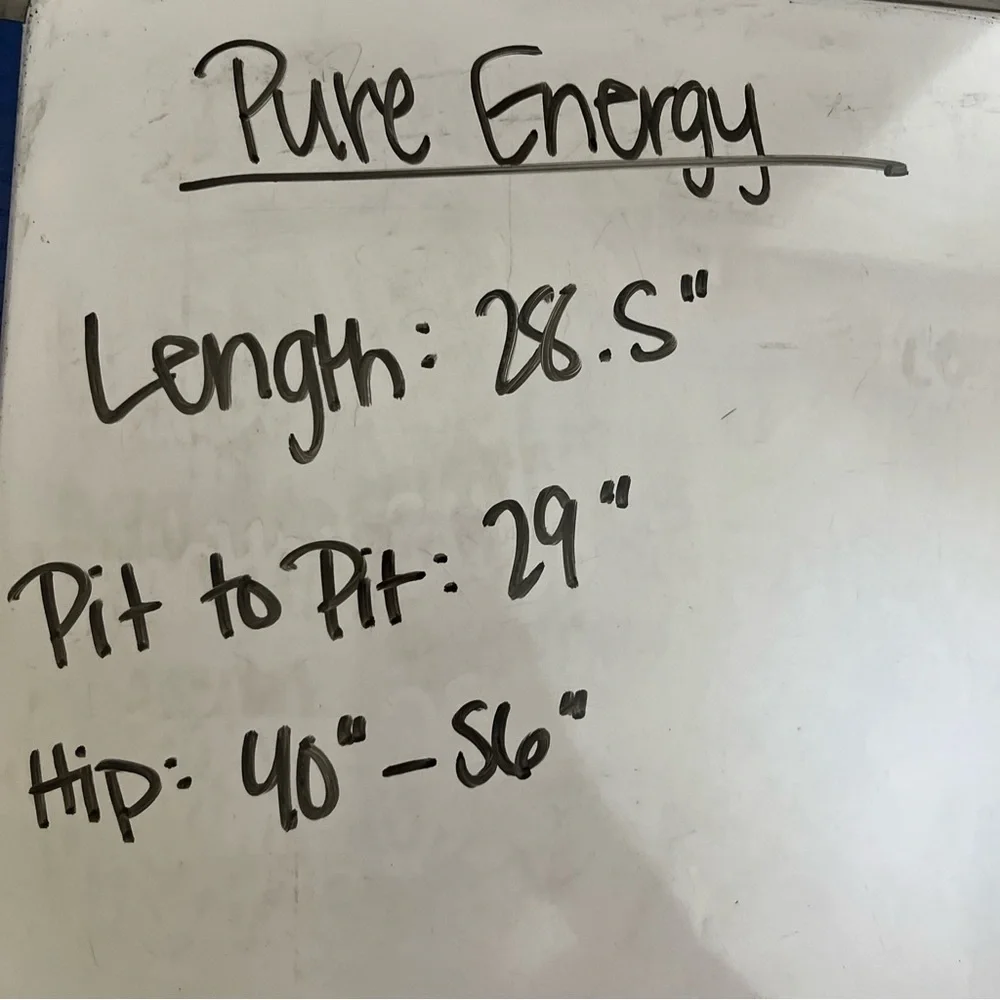 Pure Energy
Length: 28.5"
Pit to Pit: 29"
Hip: 40"-56"